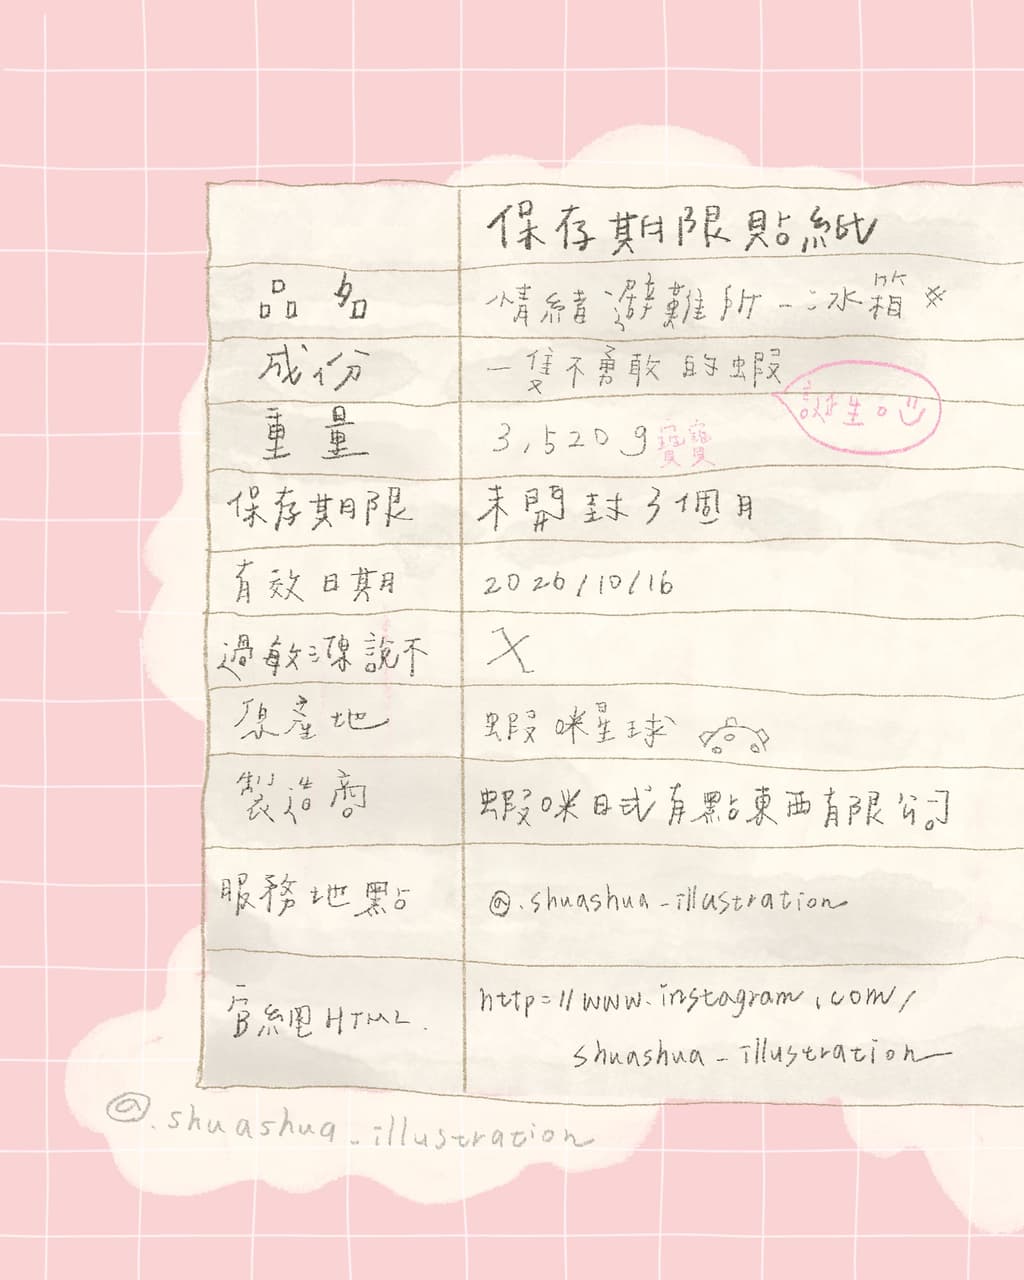 保存期限貼紙
品名 情緒避難所-冰箱※
成份 一隻不勇敢的蝦
誕生。
重量 3,520g寶寶
保存期限 未開封3個月
有效日期 2026/10/16
過敏源說不 X
原產地 蝦咪星球
製造商 蝦咪日式有點東西有限公司
服務地點 @.shuashua_illustration
官網HTML. http=//www.instagram.com/
shuashua_illustration
@.shuashua_illustration